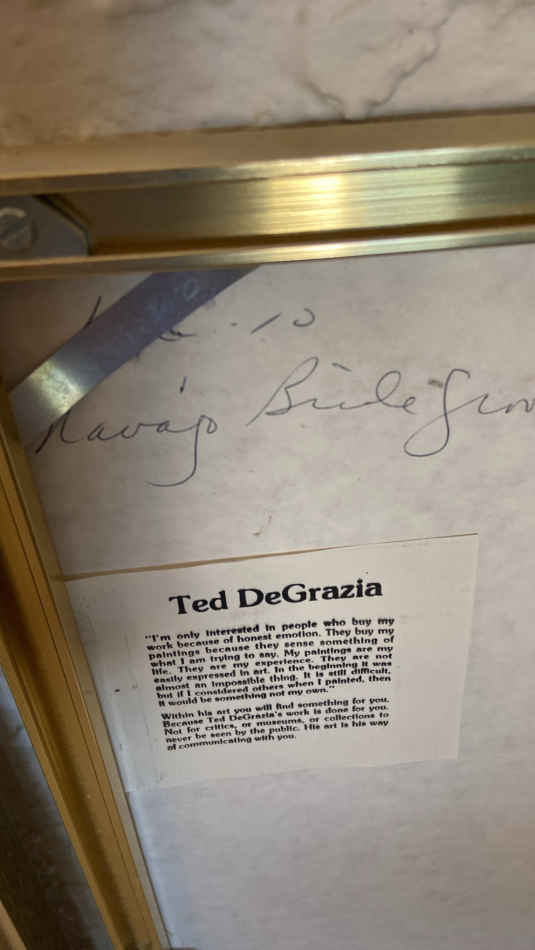 10
Navajo Bride Groo
Ted DeGrazia
"I'm only interested in people who buy my
work because of honest emotion. They buy my
paintings because they sense something of
what I am trying to say. My paintings are my
life. They are my experience. They are not
easily expressed in art. In the beginning it was
almost an impossible thing. It is still difficult,
but if I considered others when I painted, then
it would be something not my own."
Within his art you will find something for you.
Because Ted DeGrazia's work is done for you.
Not for critics, or museums, or collections to
never be seen by the public. His art is his way
of communicating with you.